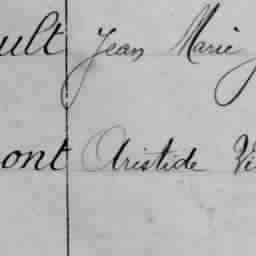 ult Jean Marie
ont Aristide Vi